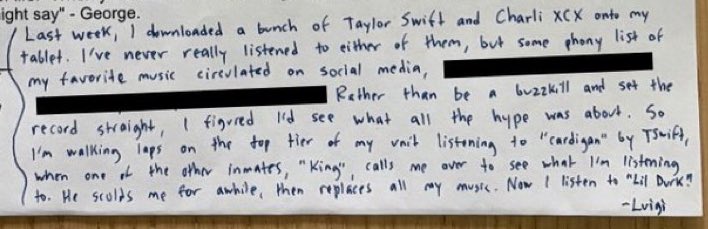 ight say" - George.
Last week, I downloaded a bunch of Taylor Swift and Charli XCX onto my
tablet. I've never really listened to either of them, but some phony list of
my favorite music circulated on social media,
Rather than be a buzzkill and set the
record straight, I figured I'd see what all the hype was about. So
I'm walking laps on the top tier of my unit listening to "cardigan" by TSwift,
when one of the other inmates, "King", calls me over to see what I'm listening
to. He scolds me for awhile, then replaces all my music. Now I listen to "Lil Durk".
-Luigi